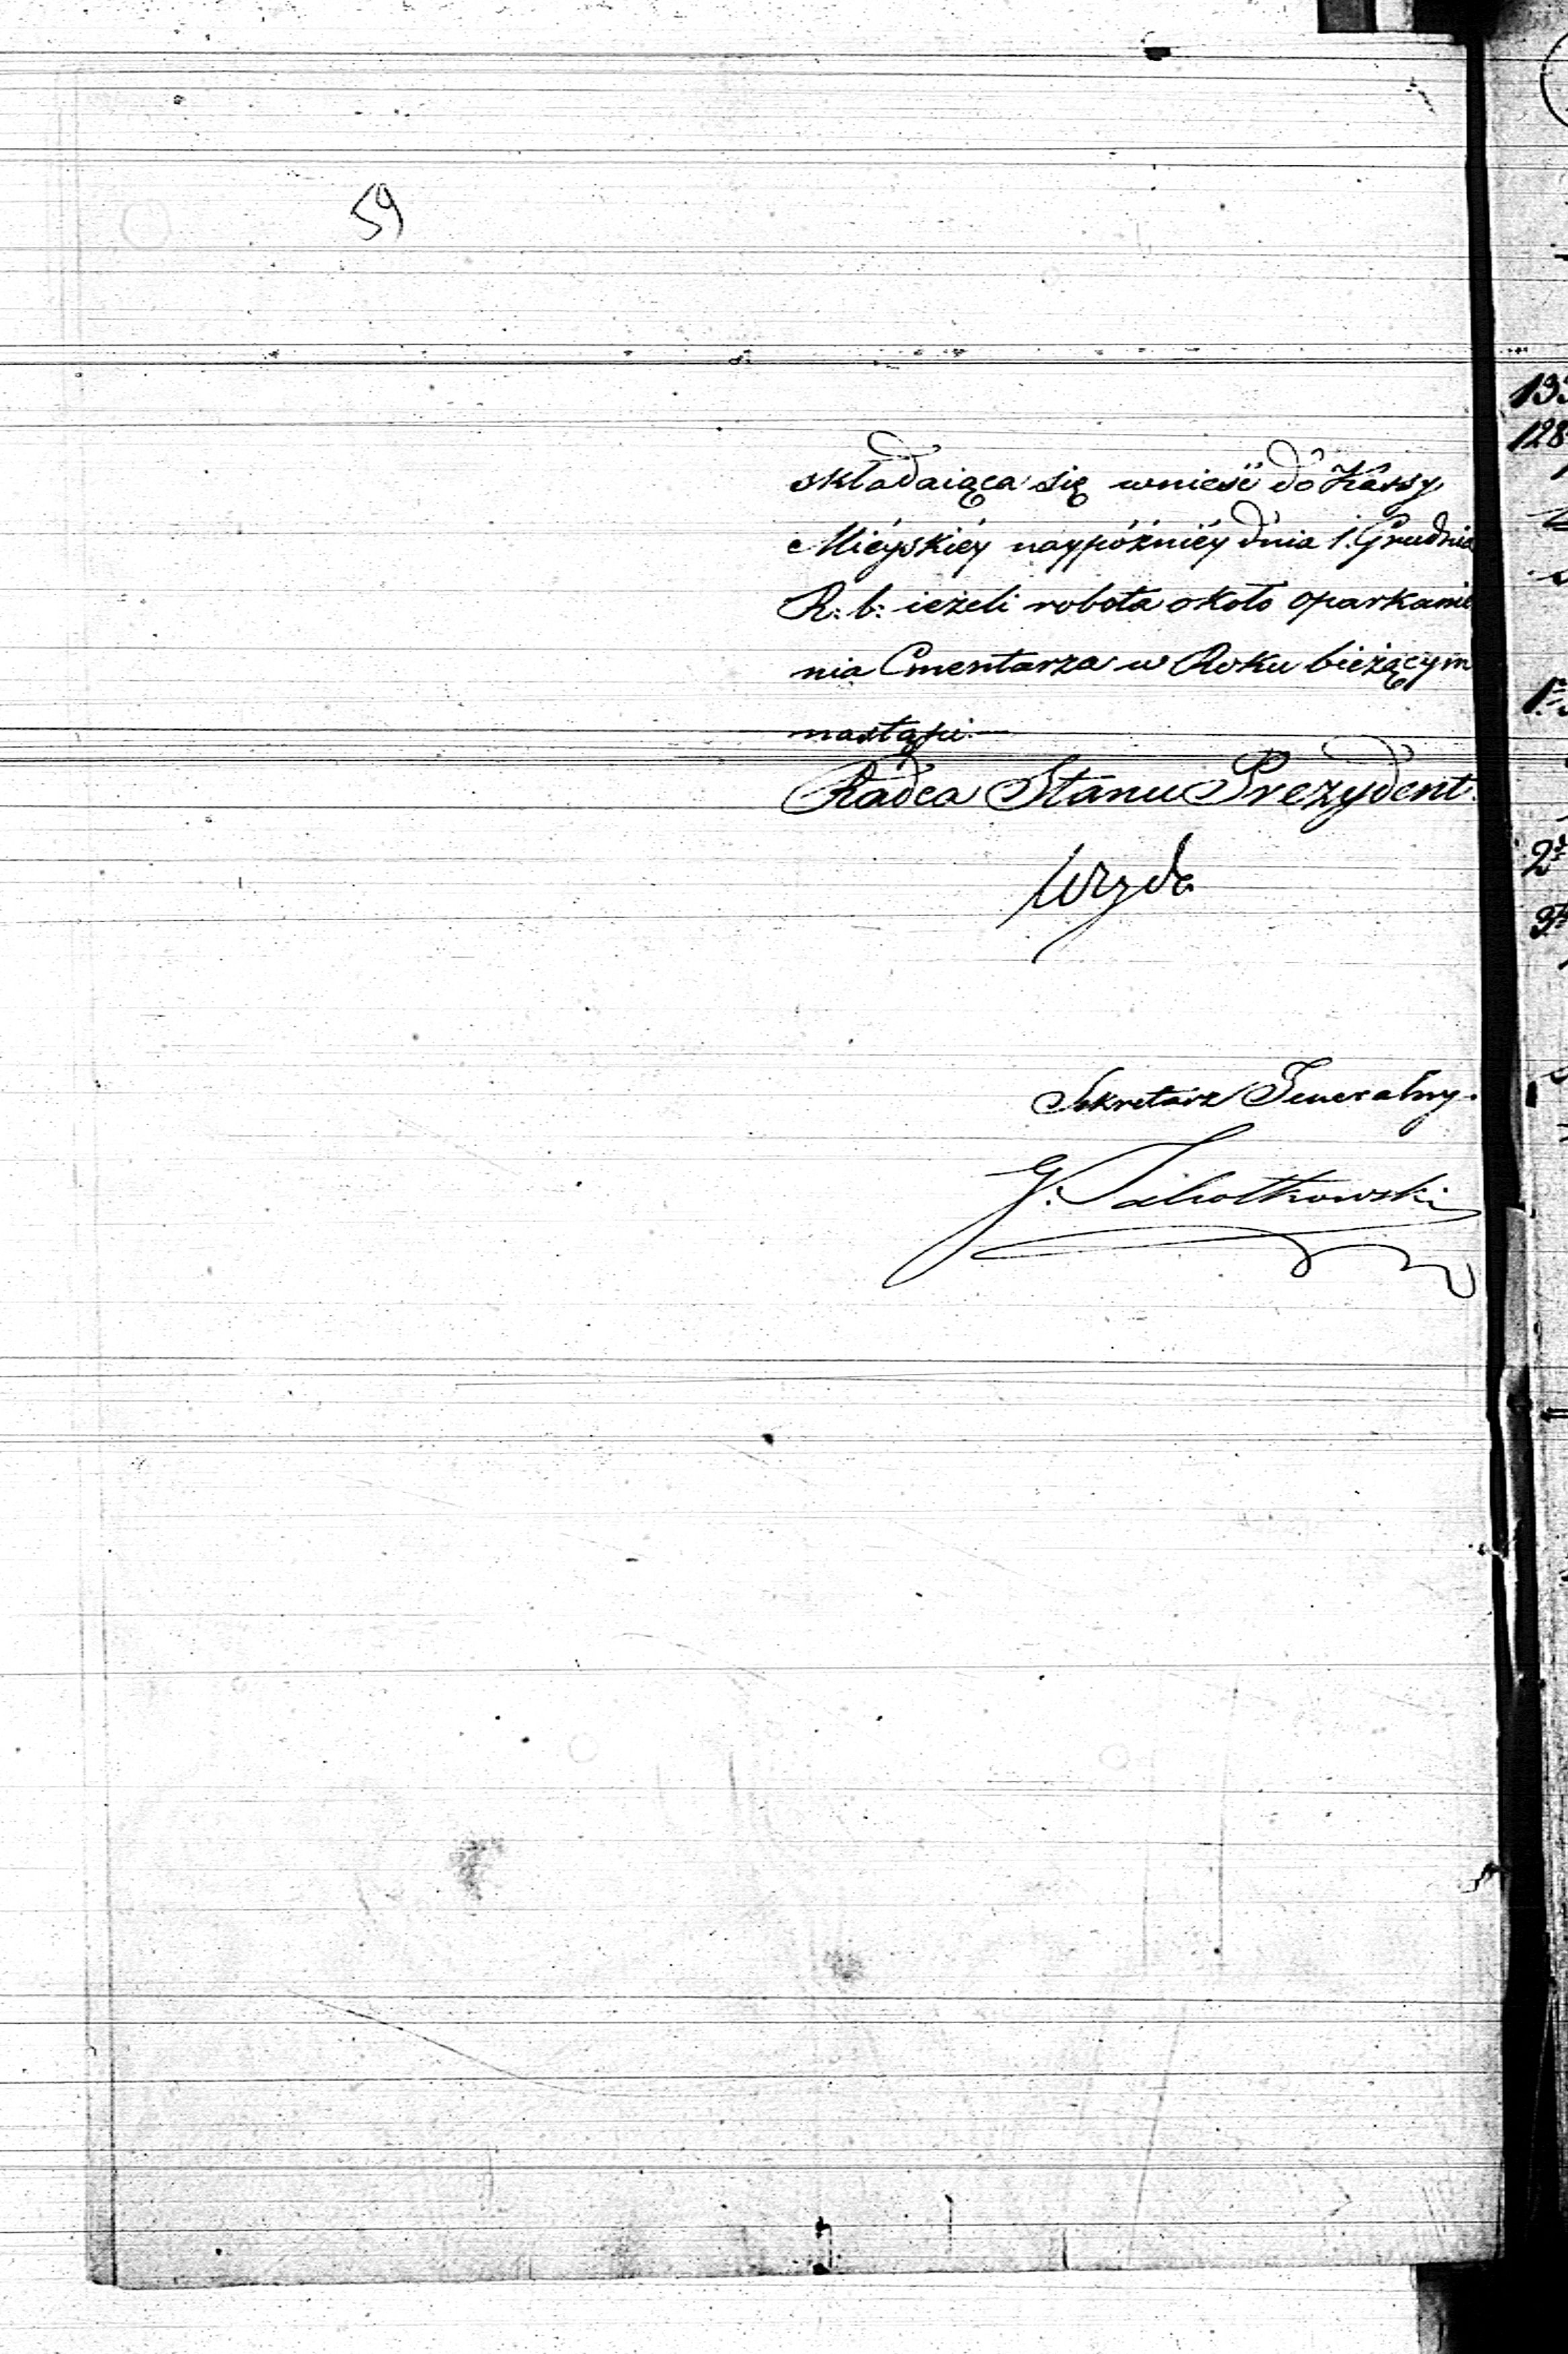 59
składaiąca się wnieść do Kassy
Mieyskiéy naypóźniéy dnia 1. Grudnia
R: b: ieżeli robota około oparkanie
nia Cmentarza w Roku bieżącym
nastąpi.—
Radca Stanu Prezydent.
Sekretarz Generalny.